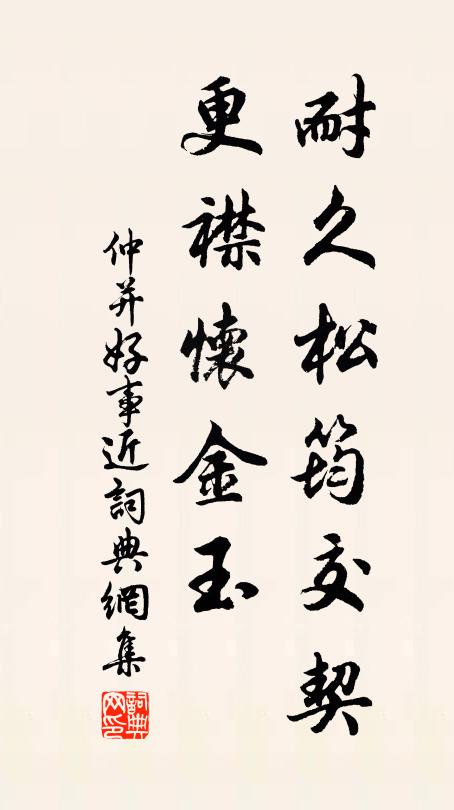 耐久松筠交契
更襟懷金玉
仲并好事近詞典網集
詞典网印